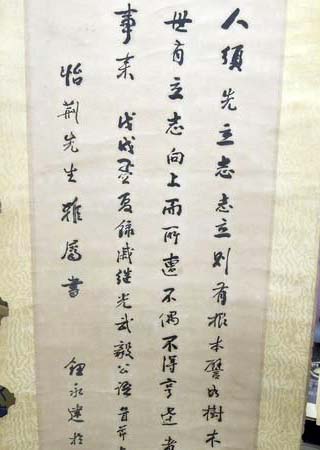 人須先立志志立則有根本譬如樹木
世有立志向上而所遭不偶不得亨達者
事 戊戌孟夏錄戚継光武毅公語
怡荆先生雅屬書 鈕永建於